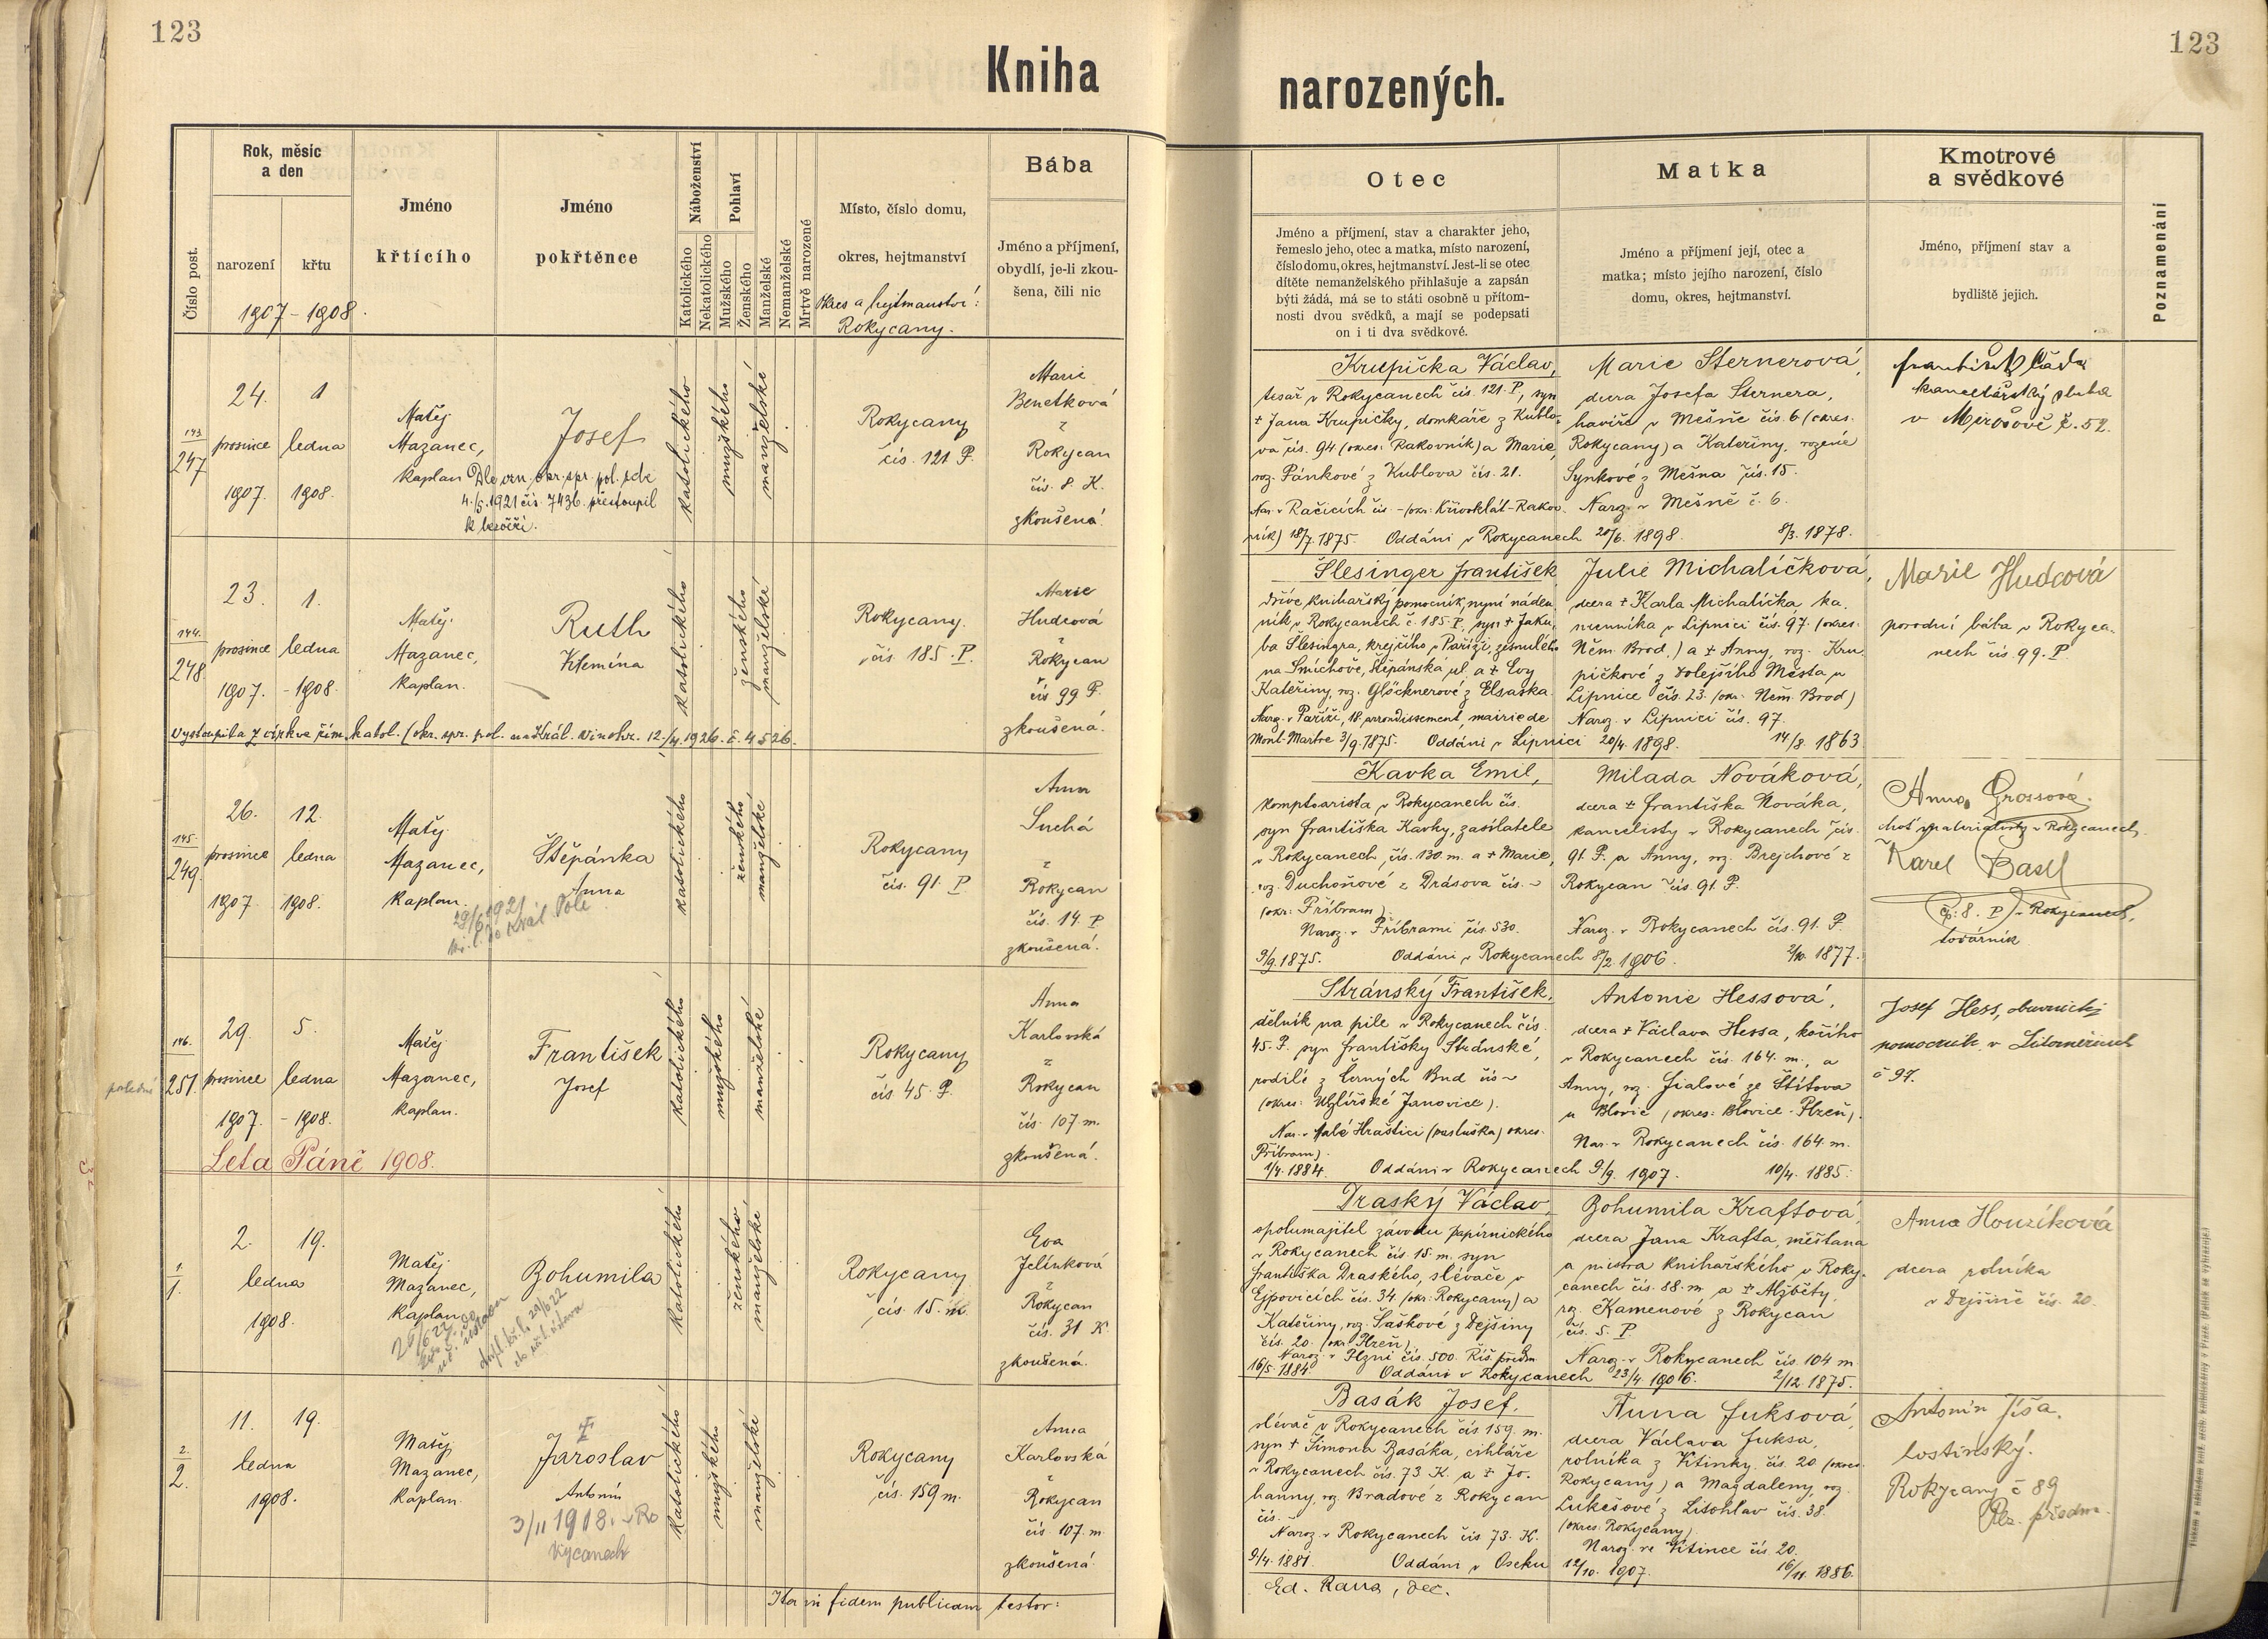 123
123
Kniha
narozených.
Číslo post.
Rok, měsíc
a den
narození
křtu
1907 – 1908.
Jméno
křtícího
Jméno
pokřtěnce
Náboženství
Katolického
Nekatolického
Pohlaví
Mužského
Ženského
Manželské
Nemanželské
Mrtvě narozené
Místo, číslo domu,
okres, hejtmanství
Okres a hejtmanství:
Rokycany.
Bába
Jméno a příjmení,
obydlí, je-li zkou-
šena, čili nic
Otec
Jméno a příjmení, stav a charakter jeho,
řemeslo jeho, otec a matka, místo narození,
číslo domu, okres, hejtmanství. Jest-li se otec
dítěte nemanželského přihlašuje a zapsán
býti žádá, má se to státi osobně u přítom-
nosti dvou svědků, a mají se podepsati
on i ti dva svědkové.
Matka
Jméno a příjmení její, otec a
matka; místo jejího narození, číslo
domu, okres, hejtmanství.
Kmotrové
a svědkové
Jméno, příjmení stav a
bydliště jejich.
Poznamenání
143
247
24. 1
prosince ledna
1907. 1908.
Matěj
Mazanec,
kaplan
Josef
4./5. 1921 čís. 7436. přestoupil
katolického
mužského
manželské
Rokycany
čís. 121 P.
Marie
Benetková
z
Rokycan
čís. 8. K.
zkoušená.
Krupička Václav,
tesař v Rokycanech čís. 121. P., syn
+ Jana Krupičky, domkáře z Kublo-
va čís. 94 (okres: Rakovník) a Marie,
roz. Pánkové z Kublova čís. 21.
Nar. v Račicích čís. – (okr: Křivoklát-Rakov-
ník) 18/7. 1875. Oddáni v Rokycanech 20/6. 1898.
Marie Sternerová,
dcera Josefa Sternera,
havíře v Mešně čís. 6 (okres.
Rokycany) a Kateřiny, rozené
Synkové z Mešna čís. 15.
Naroz. v Mešně č. 6.
8/3. 1878.
kancelářský sluha
v Mirošově č. 52.
144.
248.
23. 1.
prosince ledna
1907. - 1908.
Matěj
Mazanec,
kaplan.
Ruth
Klemína
katolického
ženského
manželské
Rokycany.
čís. 185. P.
Marie
Hudcová
z
Rokycan
čís 99 P.
zkoušená.
Vystoupila z církve řím. katol. (okr. spr. pol. na Král. Vinohr. 12./4. 1926. č. 4526.
Šlesinger František
dříve knihařský pomocník, nyní náden-
ník v Rokycanech č. 185 P., syn + Jaku-
ba Šlesingra, krejčího v Paříži, zesnulého
na Smíchově, Štěpánská ul. a + Evy
Kateřiny, roz. Glöcknerové z Elsaska.
Naroz. v Paříži, 18. arrondissement, mairie de
Mont-Martre 3/9. 1875. Oddáni v Lipnici 20/4. 1898.
Julie Michalíčková,
dcera + Karla Michalíčka, ka-
menníka v Lipnici čís. 97. (okres:
Něm. Brod.) a + Anny, roz. Kru-
pičkové z Dolejšího Města u
Lipnice čís. 23. (okr. Něm. Brod)
Naroz. v Lipnici čís. 97.
14/8. 1863.
Marie Hudcová
porodní bába v Rokyca-
nech čís. 99. P.
145.
249.
26. 12.
prosince ledna
1907 1908.
Matěj
Mazanec,
kaplan.
Štěpánka
Anna
29/6 1921
kř. l. do Král. Pole
katolického
ženského
manželské
Rokycany
čís. 91. P.
Anna
Suchá
z
Rokycan
čís. 14. P
zkoušená.
Kavka Emil,
komptoarista v Rokycanech čís.
syn Františka Kavky, zasílatele
v Rokycanech, čís. 130. m. a + Marie,
roz. Duchoňové z Drásova čís. –
(okr: Příbram)
Naroz. v Příbrami čís. 530.
9/9. 1875. Oddáni v Rokycanech 8/2. 1906.
Milada Nováková,
dcera + Františka Nováka,
kancelisty v Rokycanech čís.
91. P. a Anny, roz. Brejchové z
Rokycan čís. 91. P.
Naroz. v Rokycanech čís. 91. P.
2/10. 1877.
Anna Grossová.
choť materialisty v Rokycanech.
Karel Basl
čp. 8. P. v Rokycanech,
továrník
146.
251.
29. 5.
prosince ledna
1907 - 1908.
Matěj
Mazanec,
kaplan.
František
Josef
katolického
mužského
manželské
Rokycany
čís. 45. P.
Anna
Karlovská
z
Rokycan
čís. 107. m.
zkoušená.
Stránský František,
dělník na pile v Rokycanech čís.
45. P. syn Františky Stránské,
rodilé z Černých Bud čís –
(okres: Uhlířské Janovice).
Nar. v Malé Hraštici (pastuška) okres.
Příbram).
1/4. 1884. Oddáni v Rokycanech 9/9. 1907.
Antonie Hessová,
dcera + Václava Hessa, kočího
v Rokycanech čís. 164. m., a
Anny, roz. Fialové ze Štítova
u Blovic (okres: Blovice - Plzeň).
Nar. v Rokycanech čís. 164. m.
10/4. 1885.
Josef Hess, obuvnický
pomocník v Litoměřicích
č 97.
Leta Páně 1908.
1.
1.
2. 19.
ledna
1908.
Matěj
Mazanec,
kaplan
Bohumila
katolického
ženského
manželské
Rokycany
čís. 15. m.
Eva
Jelínková
z
Rokycan
čís. 31 K.
zkoušená.
Draský Václav,
spolumajitel závodu papírnického
v Rokycanech čís. 15. m. syn
Františka Draského, slévače v
Ejpovicích čís. 34. (okr: Rokycany) a
Kateřiny, roz. Šaškové z Dejšiny
čís. 20. (okr. Plzeň)
Naroz. v Plzni čís. 500. Říš. předm.
16/5. 1884. Oddáni v Rokycanech 23/4. 1906.
Bohumila Kraftová,
dcera Jana Krafta, měšťana
a mistra knihařského v Roky-
canech čís. 88. m. a + Alžběty
roz. Kamenové z Rokycan
čís. 5. P.
Naroz. v Rokycanech čís. 104 m
2/12. 1875.
Anna Houzíková
dcera rolníka
v Dejšině čís. 20.
2
2.
11. 19.
ledna
1908.
Matěj
Mazanec,
kaplan.
Jaroslav
Antonín
3/11 1918. v Ro
kycanech
katolického
mužského
manželské
Rokycany
čís. 159 m.
Anna
Karlovská
z
Rokycan
čís. 107. m.
zkoušená.
Basák Josef,
slévač v Rokycanech čís 159. m.
syn + Šimona Basáka, cihláře
v Rokycanech čís. 73 K. a + Jo-
hanny, roz. Bradové z Rokycan
čís.
Naroz. v Rokycanech čís 73. K.
9/4. 1881. Oddáni v Oseku 12/10. 1907.
Anna Fuksová,
dcera Václava Fuksa,
rolníka z Vitinky čís. 20. (okres
Rokycany) a Magdaleny, roz.
Lukešové z Litohlav čís. 38.
(okres: Rokycany).
Naroz. ve Vitince čís 20.
16/11. 1886.
Antonín Jíša.
hostinský.
Rokycany č 89
Plz. předm.
Ita in fidem publicam testor:
Ed. Rana, dec.